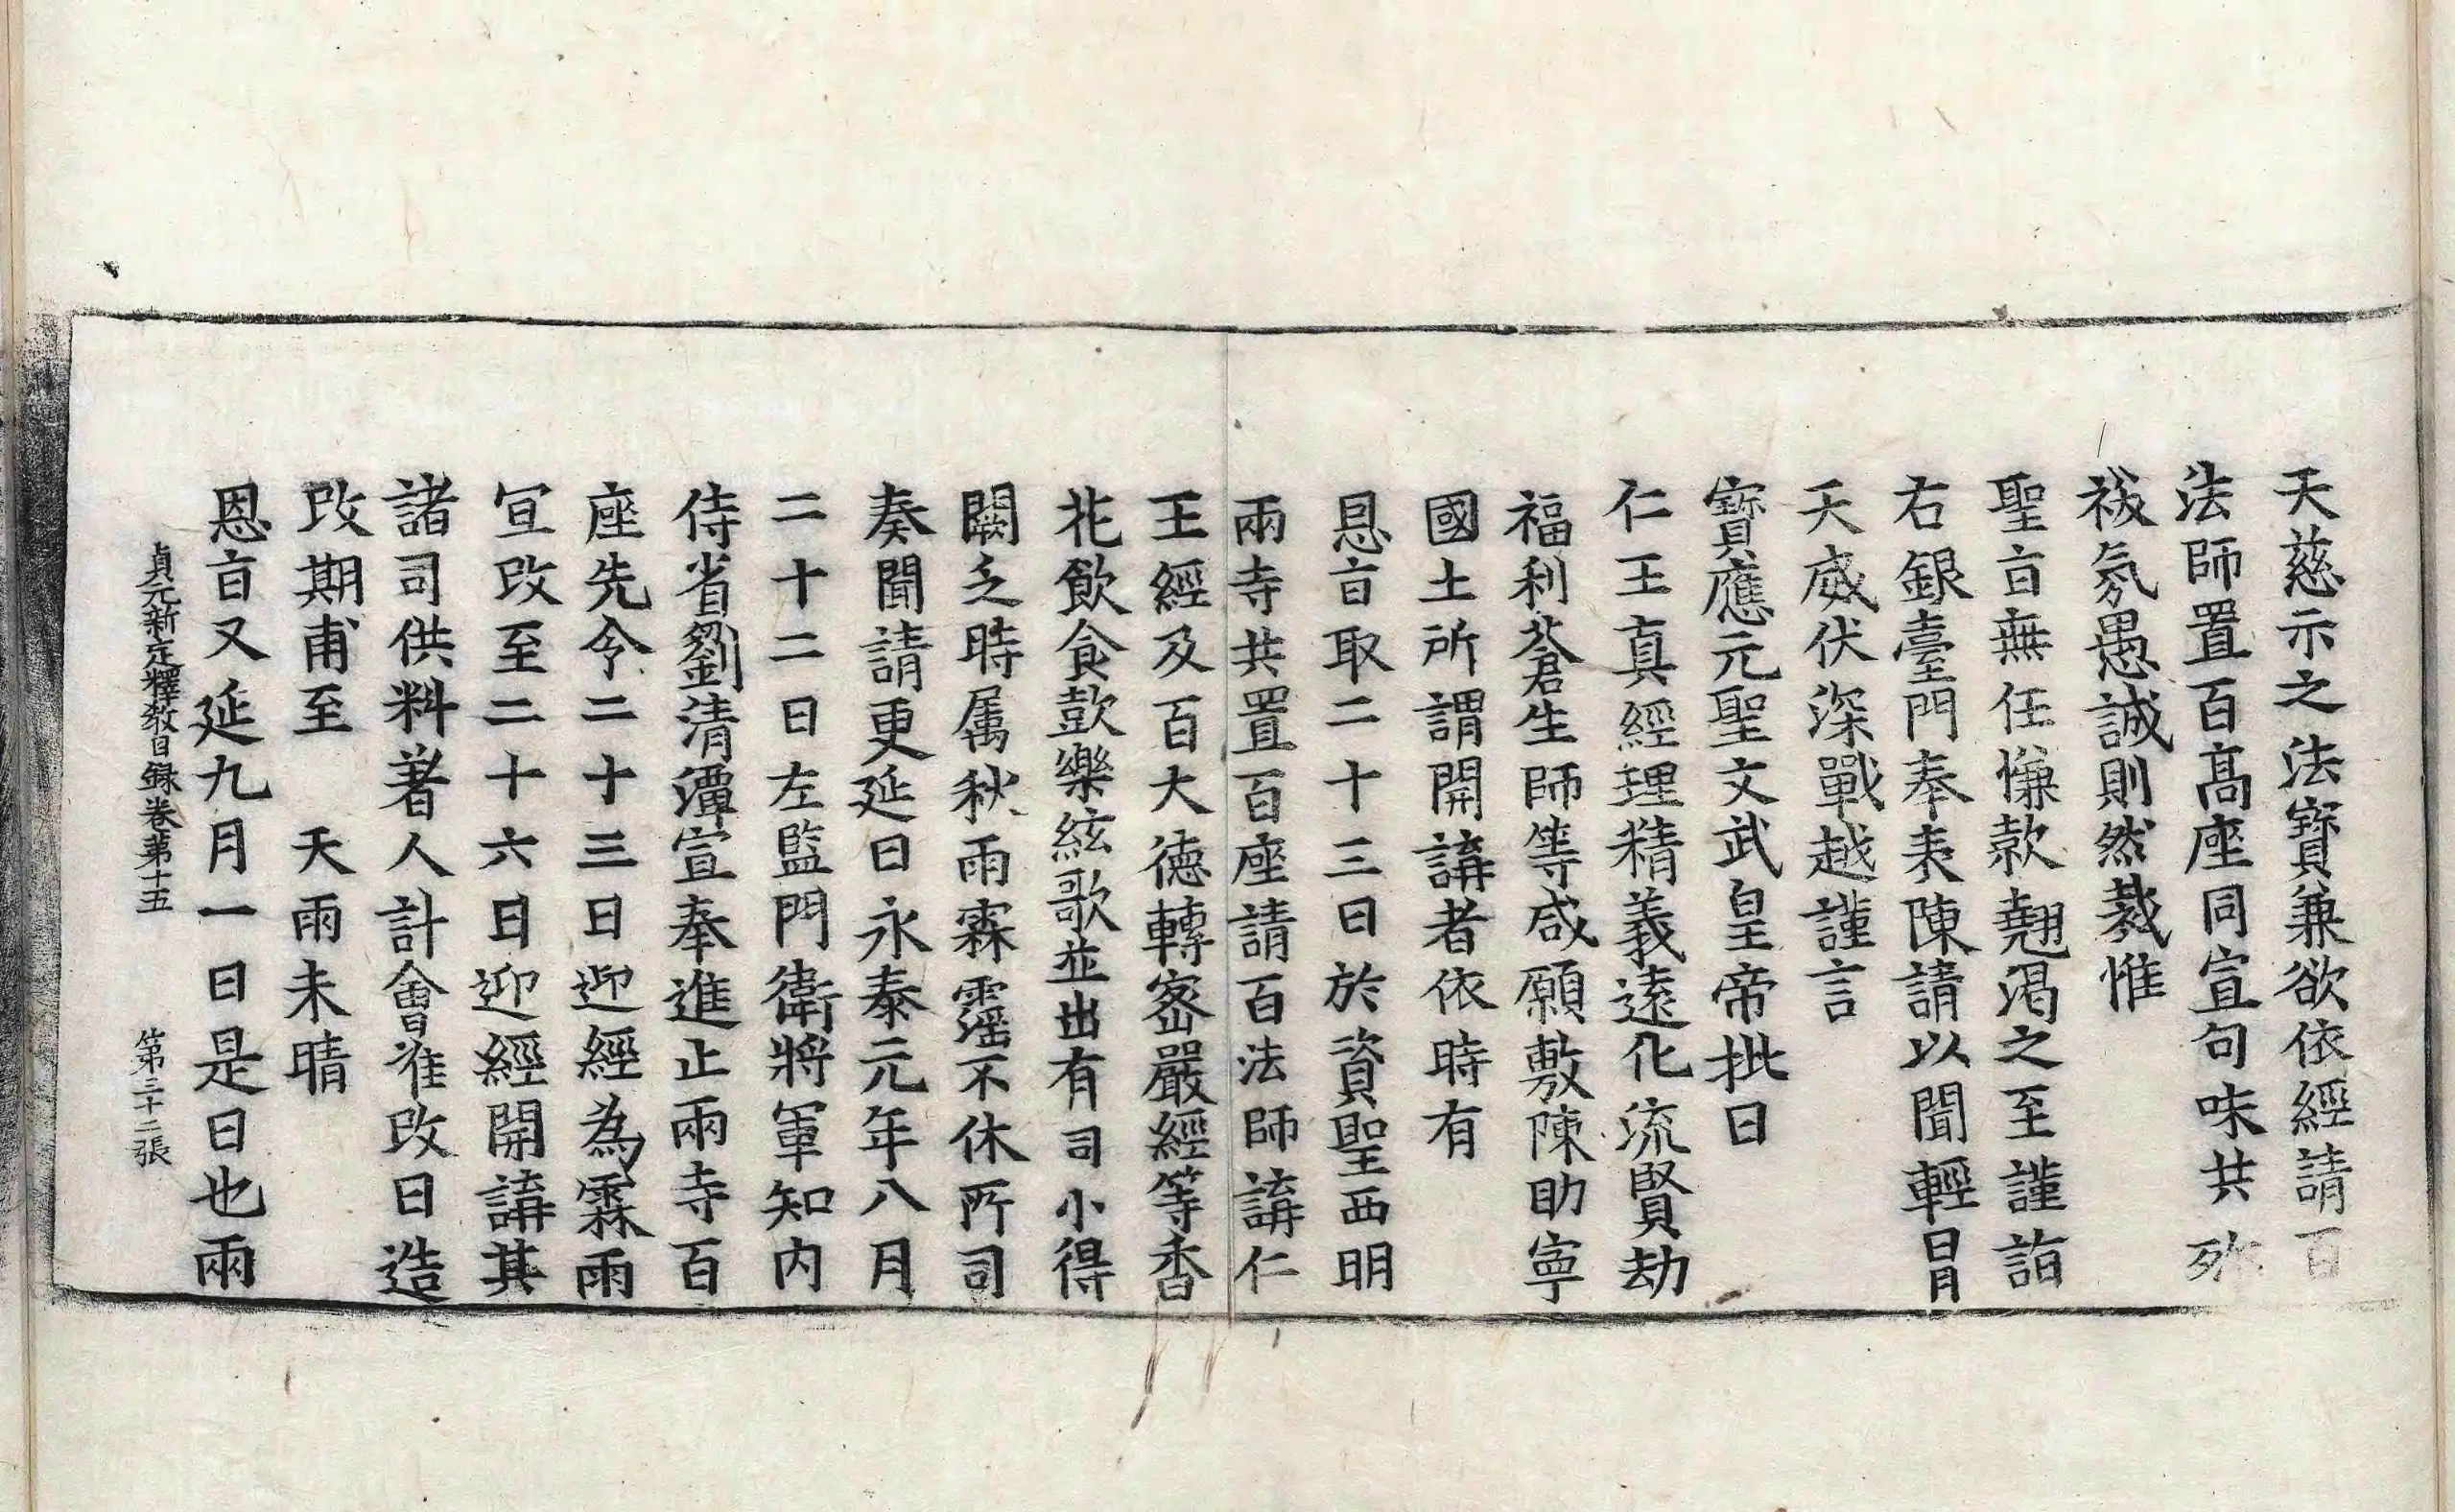 天慈示之法寶兼欲依經請百
法師置百高座同宣句味共殄
祲氛愚誠則然裁惟
聖旨無任慊款翹渴之至謹詣
右銀臺門奉表陳請以聞輕冒
天威伏深戰越謹言
寶應元聖文武皇帝批曰
仁王真經理精義遠化流賢劫
福利蒼生師等咸願敷陳助寧
國土所謂開講者依時有
恩旨取二十三日於資聖西明
兩寺共置百座請百法師講仁
王經及百大德轉密嚴經等香
花飲食鼓樂絃歌並出有司小得
闕乏時属秋雨霖霪不休所司
奏聞請更延日永泰元年八月
二十二日左監門衛將軍知內
侍省劉清潭宣奉進止兩寺百
座先令二十三日迎經為霖雨
宜改至二十六日迎經開講其
諸司供料著人計會准改日造
改期甫至　天雨未晴
恩旨又延九月一日是日也兩
貞元新定釋教目録卷第十五　第三十二張